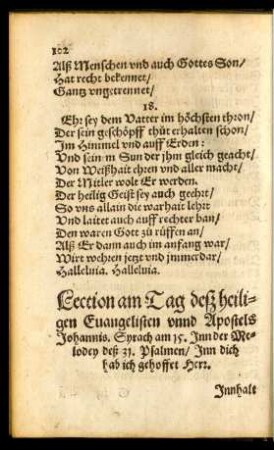 102
Alß Menschen vnd auch Gottes Son/
Hat recht bekennet/
Gantz vngetrennet/
18.
Ehr sey dem Vatter im höchsten thron/
Der sein geschöpff thůt erhalten schon/
Im Himmel vnd auff Erden:
Vnd sein m Sun der jhm gleich geacht/
Von Weißhait ehren vnd aller macht/
Der Mitler wolt Er werden.
Der heilig Geist sey auch geehrt/
So vns allain die warhait lehrt
Vnd laitet auch auff rechter ban/
Den waren Gott zů rüffen an/
Alß Er dann auch im anfang war/
Wirt wehren jetzt vnd jmmerdar/
Halleluia. Halleluia.
Lection am Tag deß heili-
gen Euangelisten vnnd Apostels
Johannis. Syrach am 15. Inn der Me-
lodey deß 31. Psalmen/ Inn dich
hab ich gehoffet Herr.
Innhalt